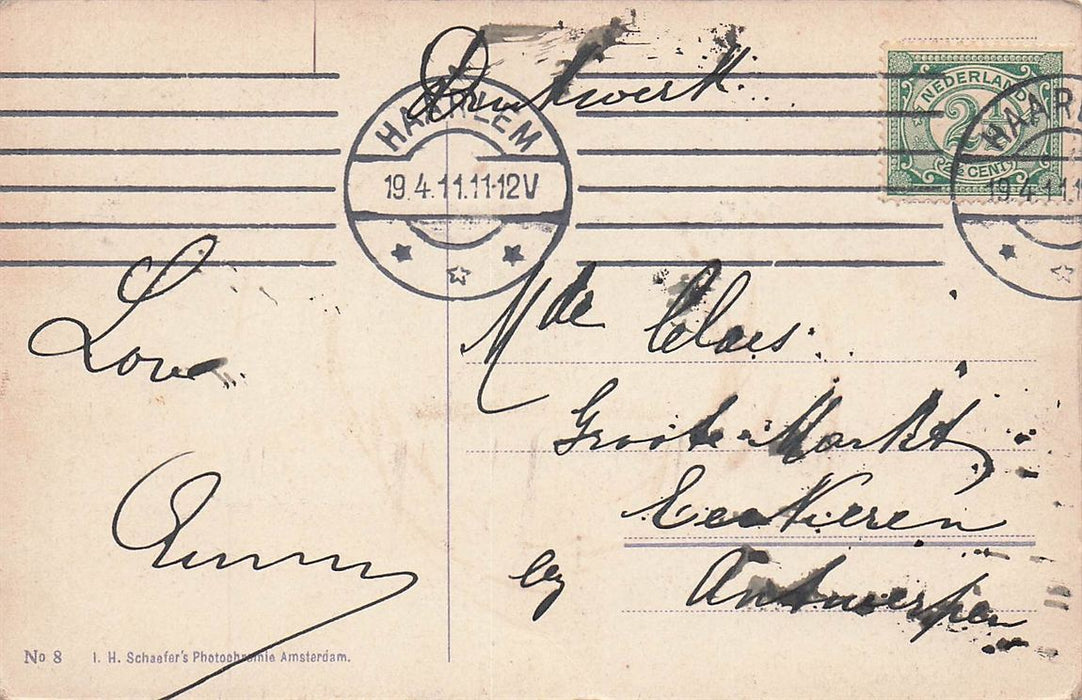 Drukwerk
NEDERLAND
2½
2½ CENT
HAARLEM
19.4.11.11-12V
HAAR
19.4.11.1
Love
Mde Claes.
Groote Markt,
Eeckeren
by Antwerpen
No 8 I. H. Schaefer's Photochromie Amsterdam.